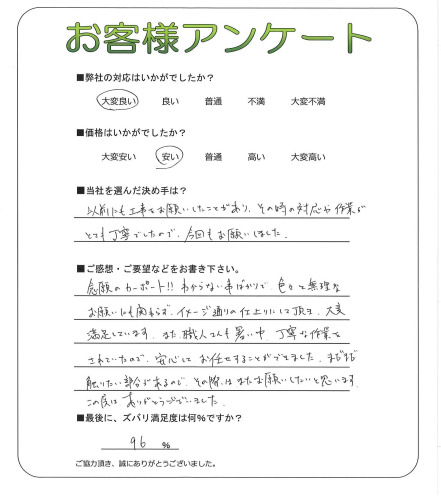 お客様アンケート
■弊社の対応はいかがでしたか？
大変良い 良い 普通 不満 大変不満
■価格はいかがでしたか？
大変安い 安い 普通 高い 大変高い
■当社を選んだ決め手は？
以前にも工事をお願いしたことがあり、その時の対応や作業が
とても丁寧でしたので、今回もお願いしました。
■ご感想・ご要望などをお書き下さい。
念願のカーポート!! わからない事ばかりで、色々と無理な
お願いにも関わらず、イメージ通りの仕上りにして頂き、大変
満足しています。また、職人さんも暑い中、丁寧な作業を
されていたので、安心してお任せすることができました。まだまだ
触りたい部分があるので、その際はまたお願いしたいと思います。
この度はありがとうございました。
■最後に、ズバリ満足度は何%ですか？
96 %
ご協力頂き、誠にありがとうございました。